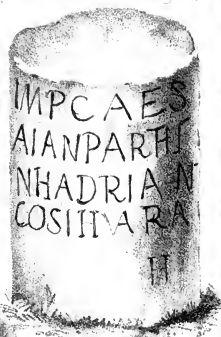 IMPCAES
AIANPARTHI
NHADRIAN
COSIIIARA
II